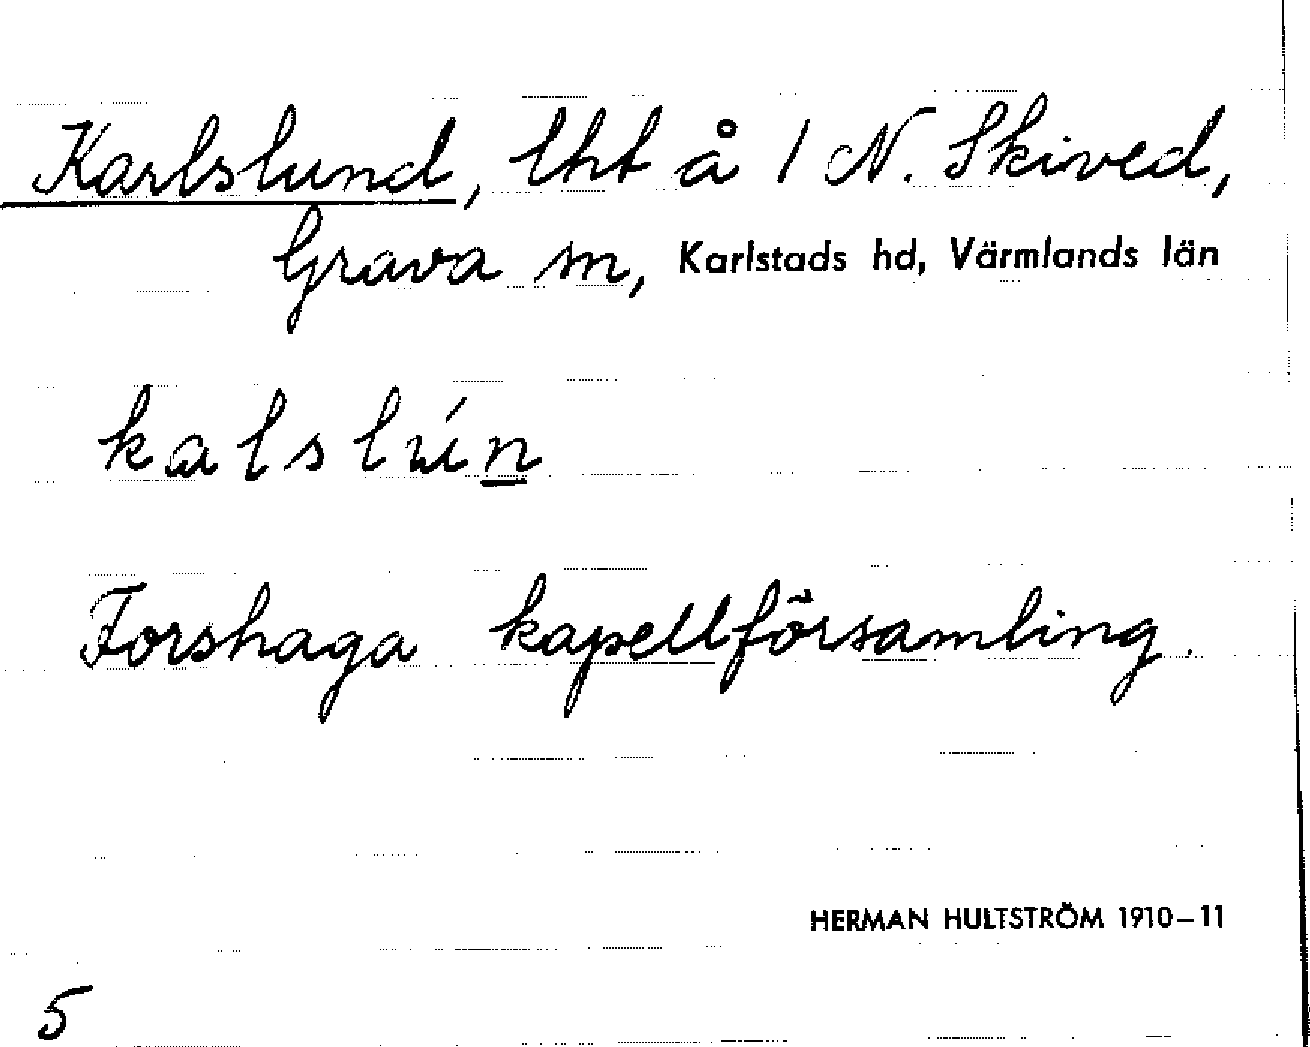 Karlslund, lht å 1 N. Skived,
Grava sn, Karlstads hd, Värmlands län
kalslún
Forshaga kapellförsamling.
HERMAN HULTSTRÖM 1910–11
5